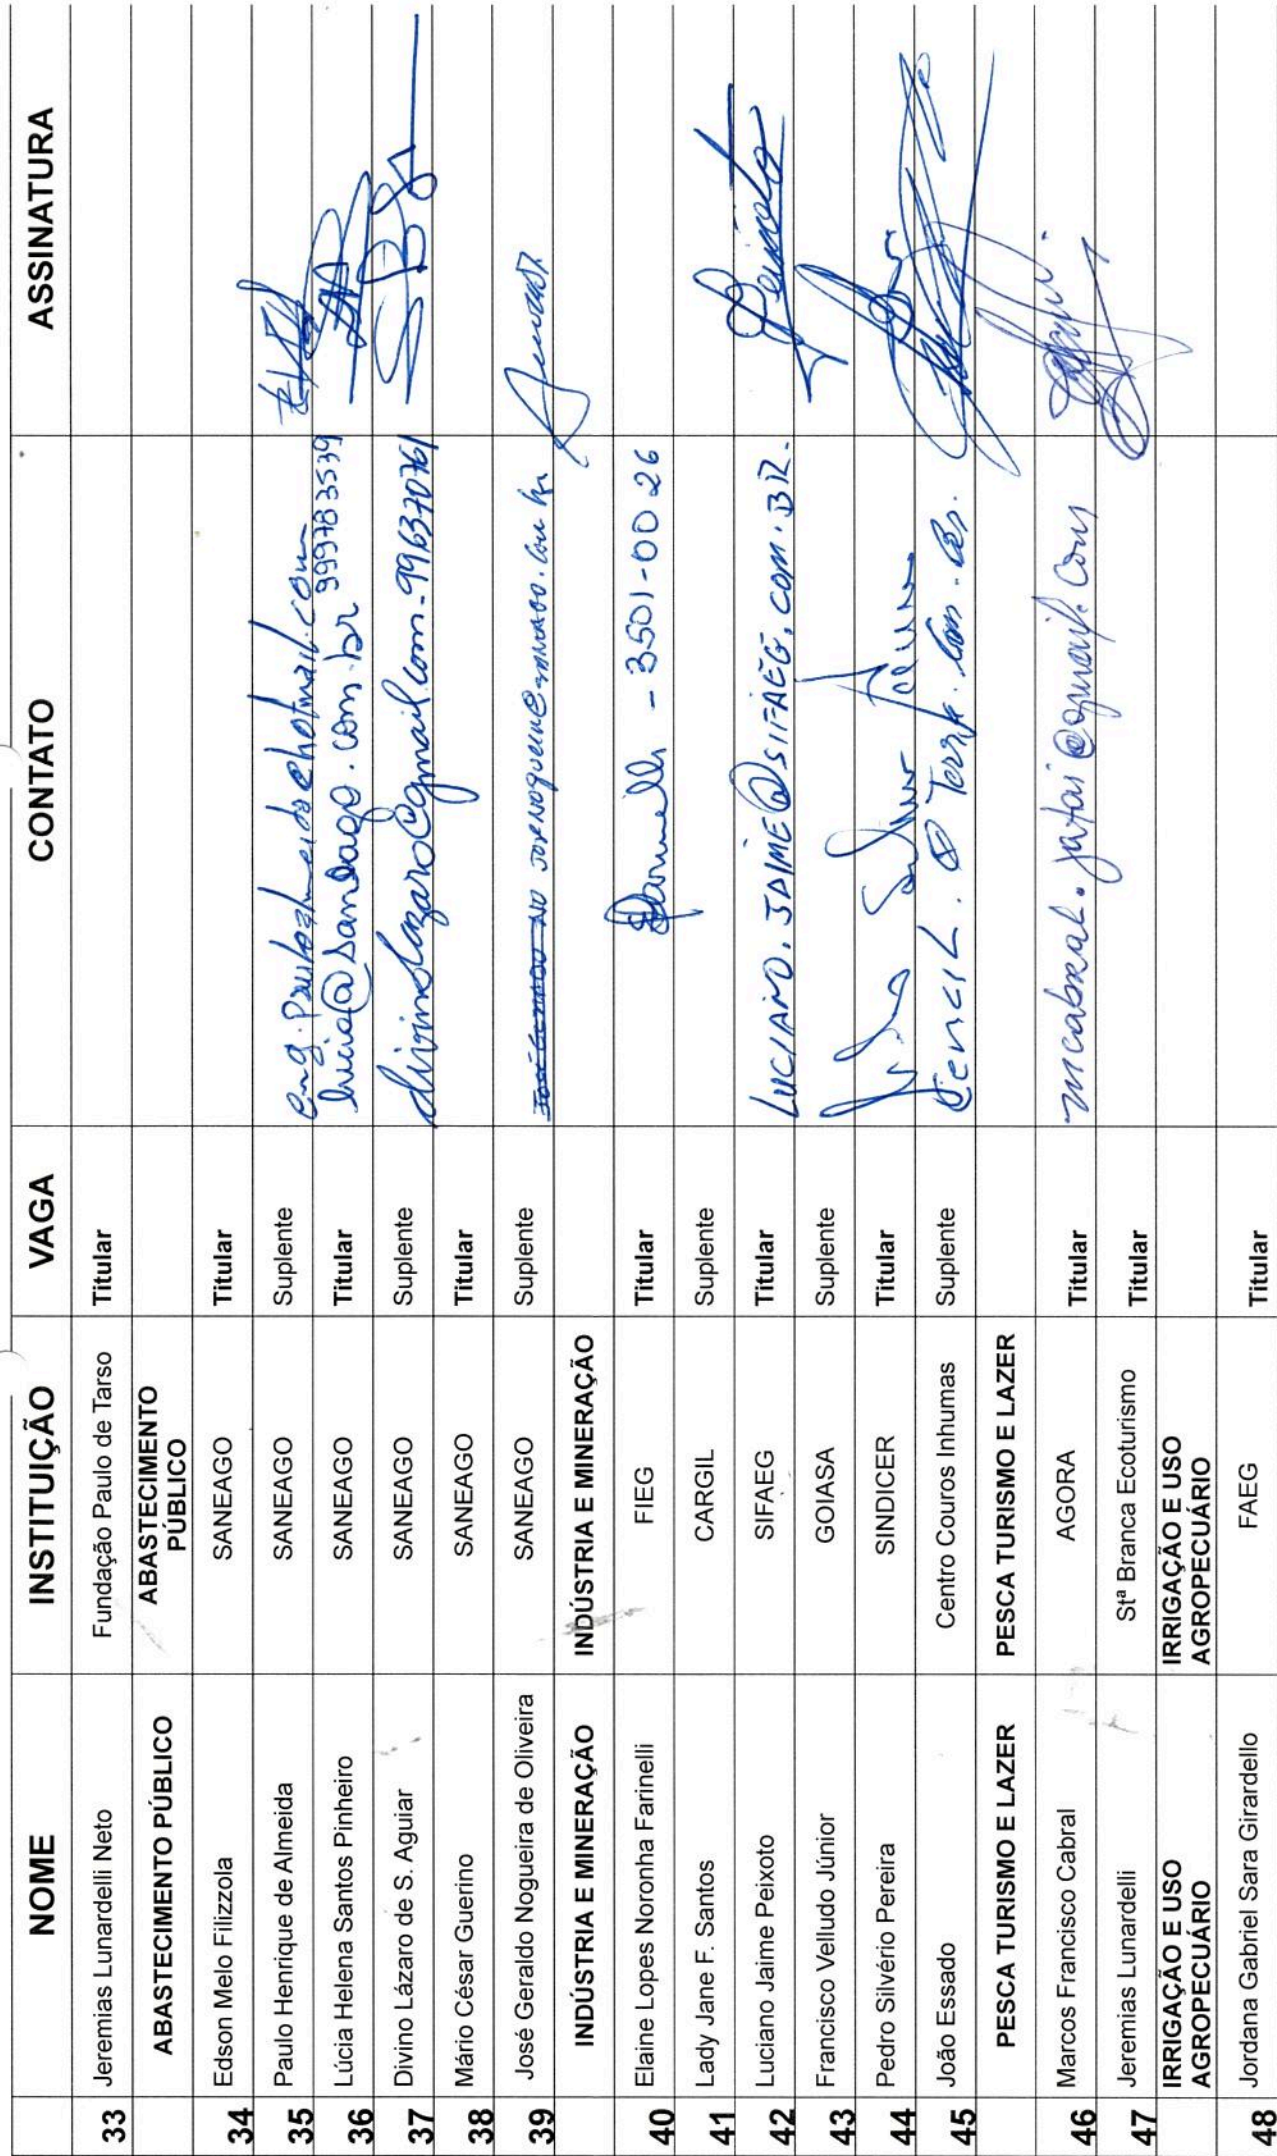 NOME INSTITUIÇÃO VAGA CONTATO ASSINATURA
33 Jeremias Lunardelli Neto Fundação Paulo de Tarso Titular
ABASTECIMENTO PÚBLICO ABASTECIMENTO PÚBLICO
34 Edson Melo Filizzola SANEAGO Titular
35 Paulo Henrique de Almeida SANEAGO Suplente
36 Lúcia Helena Santos Pinheiro SANEAGO Titular lucia@saneago.com.br 999783539
37 Divino Lázaro de S. Aguiar SANEAGO Suplente divinolazaro@gmail.com-99637076
38 Mário César Guerino SANEAGO Titular
39 José Geraldo Nogueira de Oliveira SANEAGO Suplente
INDÚSTRIA E MINERAÇÃO INDÚSTRIA E MINERAÇÃO
40 Elaine Lopes Noronha Farinelli FIEG Titular - 3501-0026
41 Lady Jane F. Santos CARGIL Suplente
42 Luciano Jaime Peixoto SIFAEG Titular LUCIANO.JAIME@SIFAEG.COM.BR. Peixoto
43 Francisco Velludo Júnior GOIASA Suplente
44 Pedro Silvério Pereira SINDICER Titular
45 João Essado Centro Couros Inhumas Suplente
PESCA TURISMO E LAZER PESCA TURISMO E LAZER
46 Marcos Francisco Cabral AGORA Titular mcabral.jatai@gmail.com
47 Jeremias Lunardelli Stª Branca Ecoturismo Titular
IRRIGAÇÃO E USO AGROPECUÁRIO IRRIGAÇÃO E USO AGROPECUÁRIO
48 Jordana Gabriel Sara Girardello FAEG Titular